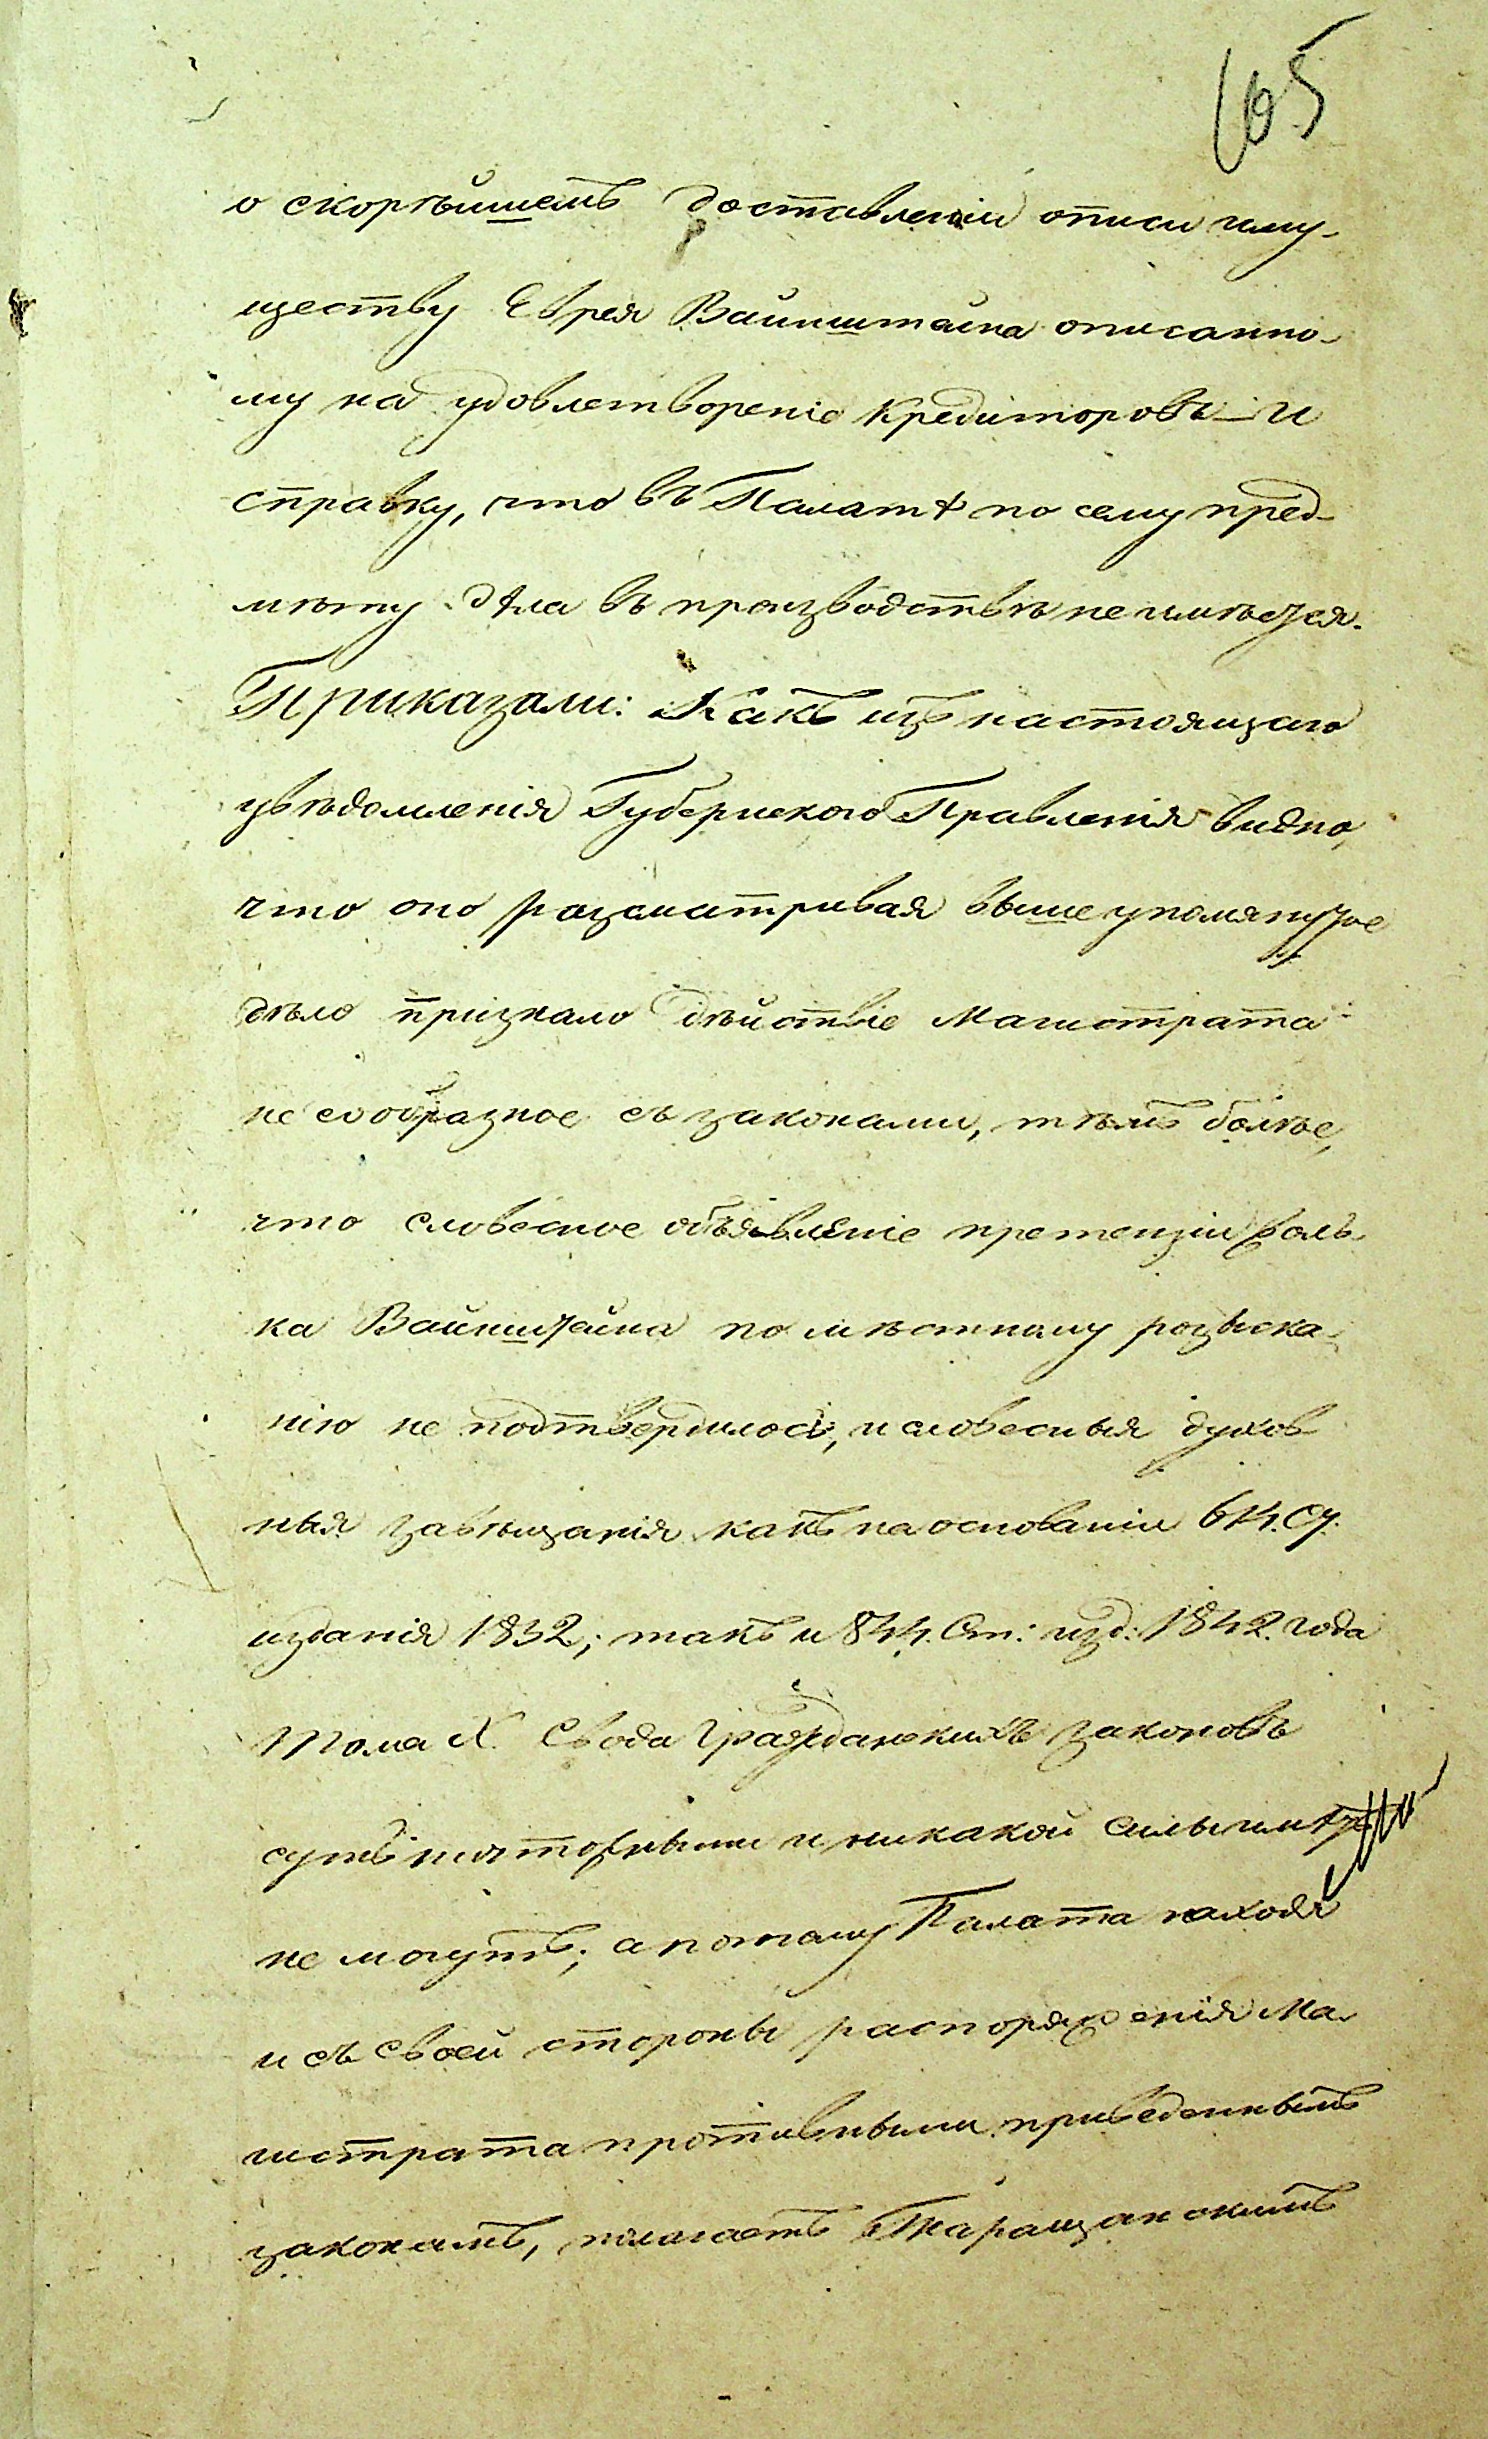 165
о скорѣйшемъ доставленіи описи иму-
ществу Еврея Вайнштейна описанно-
му на удовлетвореніе кредиторовъ – и
справку, что въ Палатѣ по сему пред-
мѣту дѣла въ производствѣ не имѣется.
Приказали: Какъ изъ настоящаго
увѣдомленія Губернскаго Правленія видно,
что оно разсматривая вышеупомянутое
дѣло признало дѣйствіе Магистрата
не сообразное съ законами, тѣмъ болѣе,
что словесное объявленіе претензіи
ка Вайнштейна по мѣстному розыска-
нію не подтвердилось, и словесныя духов
ныя завѣщанія какъ на основаніи 614. Ст.
изданія 1832, такъ и 844. Ст: изд: 1842. года
тома X. Свода Гражданскихъ законовъ
суть ничтожными и никакой силы имѣть
не могутъ; а потому Палата находя
и съ своей стороны распоряженія Ма-
гистрата противными приведеннымъ
законамъ, полагаетъ Таращанскимъ